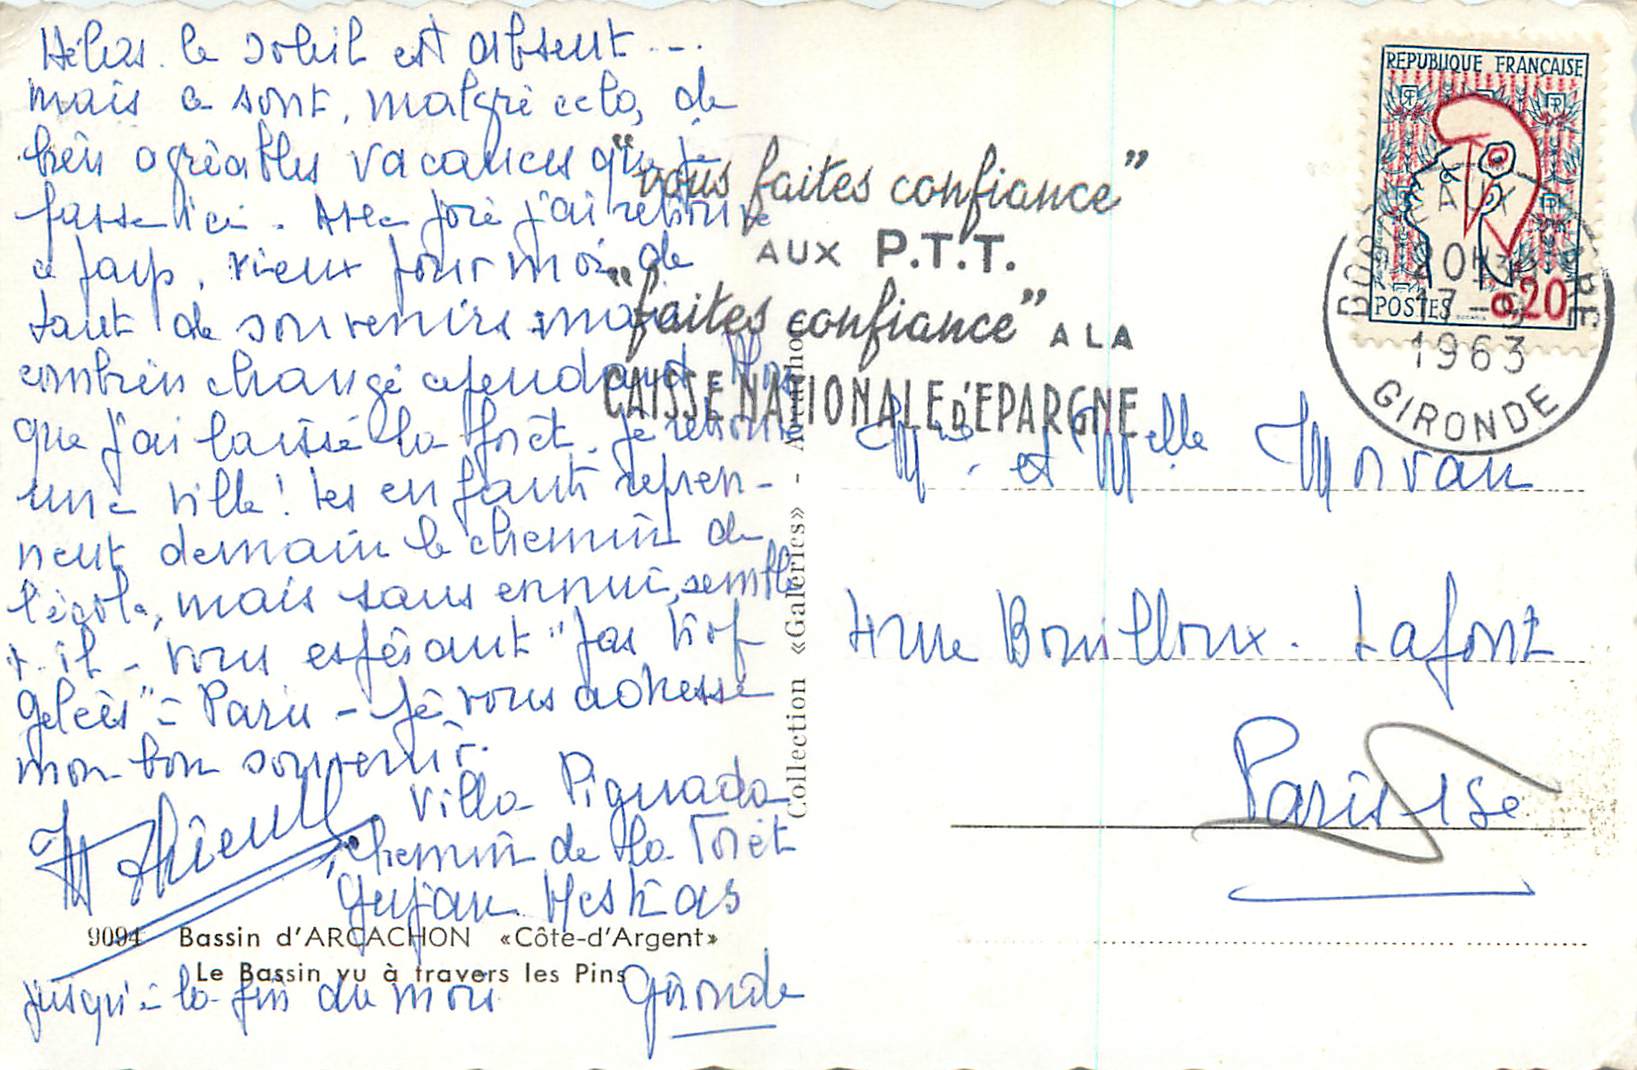 Hélas. le soleil est absent ...
mais ce sont, malgré cela, de
très agréables vacances que je
passe ici. Avec joie j'ai retrouvé
ce pays, vieux pour moi de
tant de souvenirs : mais
combien changé cependant. Alors
que j'ai laissé la forêt, je retrouve
une ville ! Les enfants repren-
nent demain le chemin de
l'école, mais sans ennui, semble
t-il - vous espérant "pas trop
gelées" à Paris - Je vous adresse
mon bon souvenir.
Villa Pignada
chemin de la Forêt
Gujan Mestras
Gironde
jusqu'à la fin du mois
9094 Bassin d'ARCACHON «Côte-d'Argent»
Le Bassin vu à travers les Pins
Collection «Galeries» -
"vous faites confiance"
AUX P.T.T.
"faites confiance" A LA
CAISSE NATIONALE D'EPARGNE
REPUBLIQUE FRANÇAISE
POSTES 0,20
BORDEAUX
20H30
17-9
1963
GIRONDE
Mme et Melle Morvan
4 rue Bouilloux-Lafont
Paris 15e